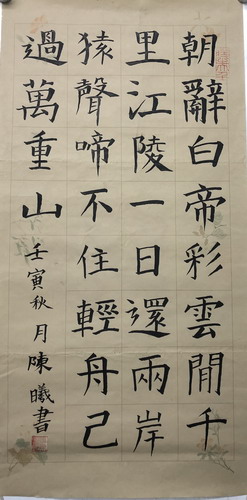 朝辭白帝彩雲間千
里江陵一日還兩岸
猿聲啼不住輕舟已
過萬重山
壬寅秋月陳曦書